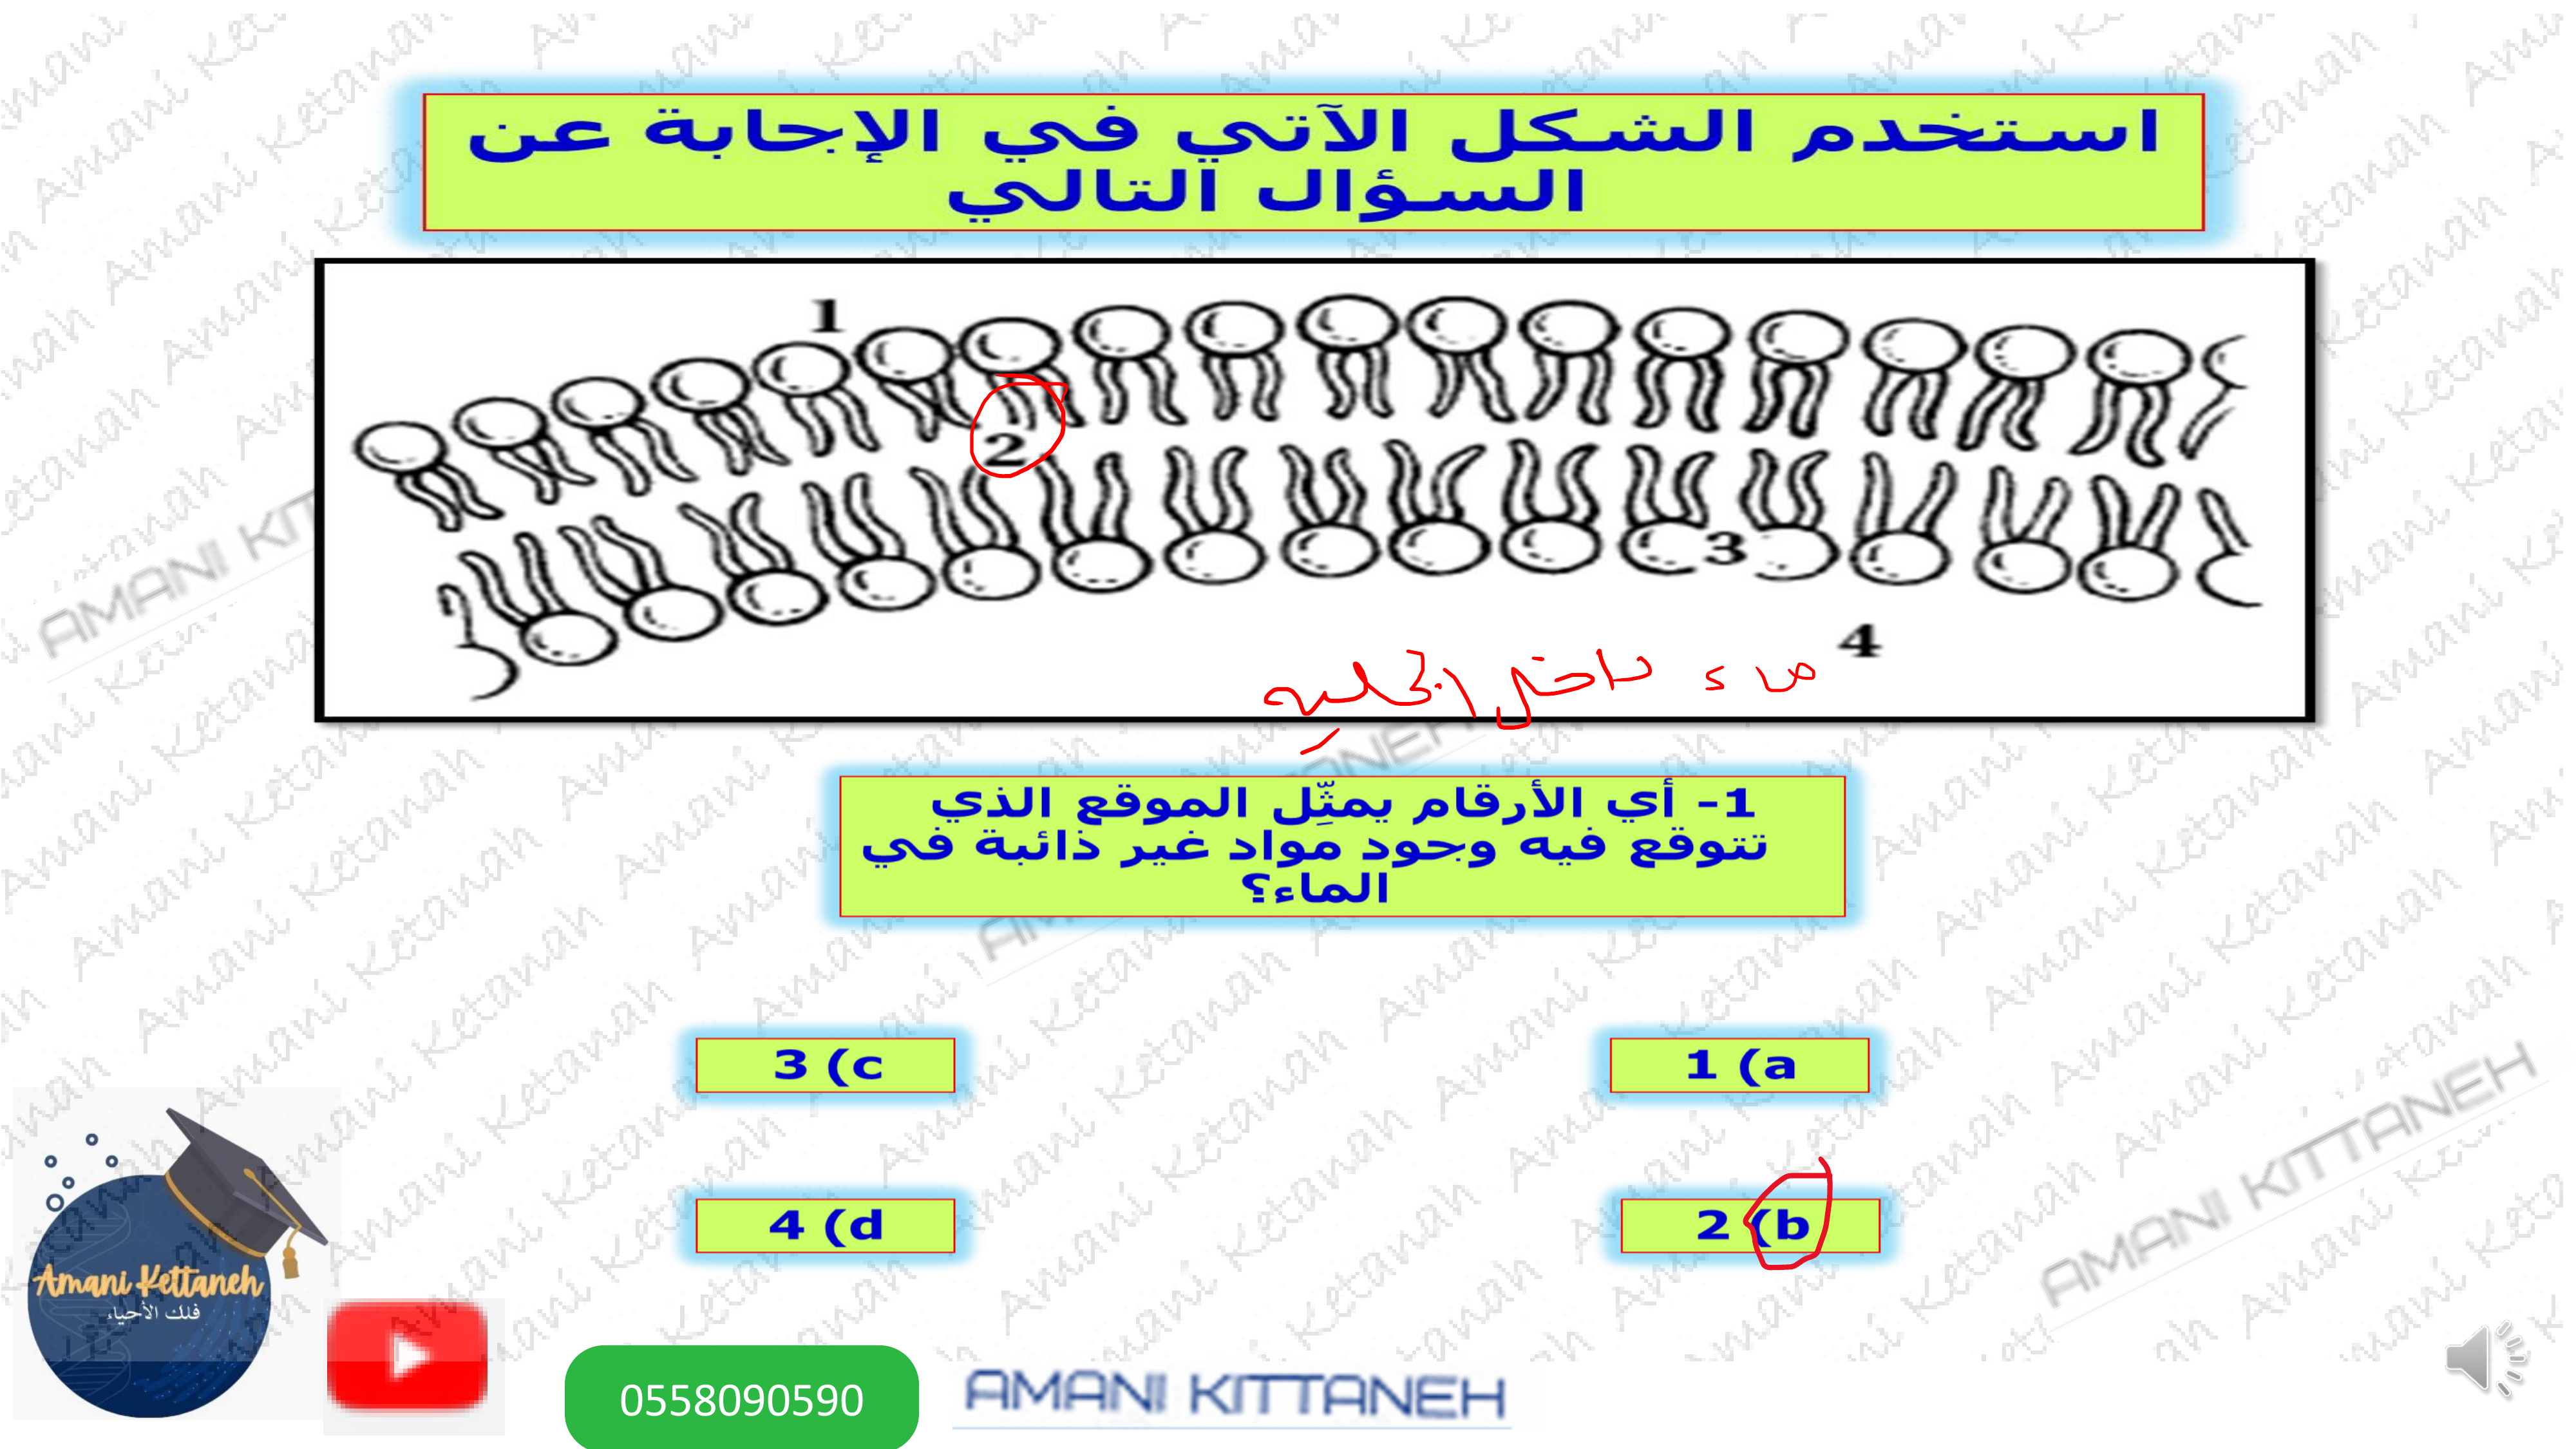 استخدم الشكل الآتي في الإجابة عن
السؤال التالي
1
2
3
4
ماء داخل الخلية
1- أي الأرقام يمثِّل الموقع الذي
تتوقع فيه وجود مواد غير ذائبة في
الماء؟
1 (a
3 (c
2 (b
4 (d
Amani Kettaneh
فلك الأحياء
0558090590
AMANI KITTANEH
AMANI KITTANEH